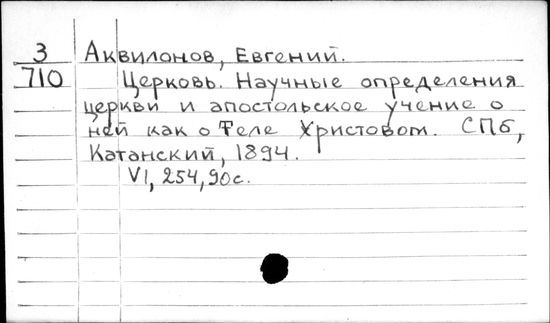 3 Аквилонов, Евгений.
710 Церковь. Научные определения
церкви и апостольское учение о
ней как о Теле Христовом. СПб,
Катанский, 1894.
VI, 254, 90 с.